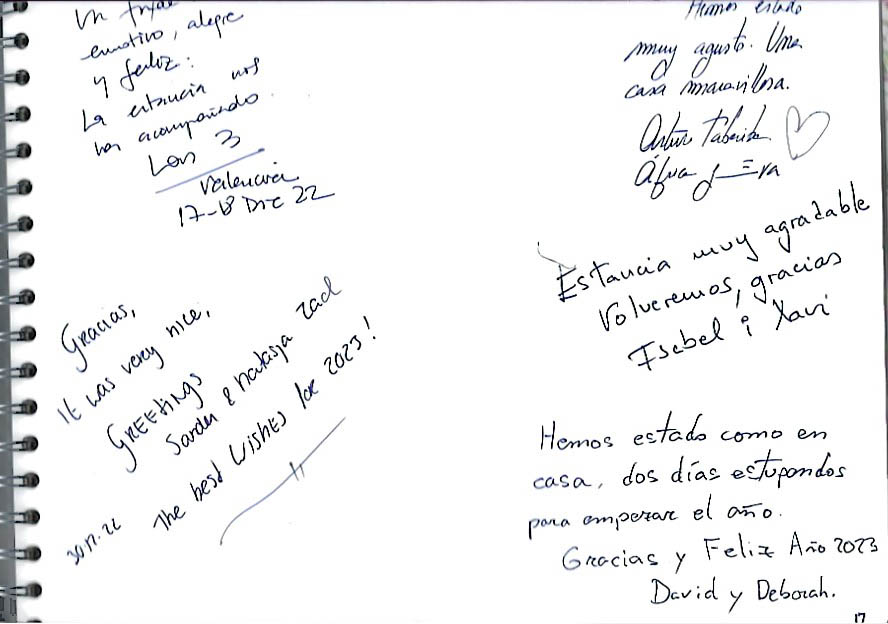 Un
emotivo, alegre
y feliz:
La estancia nos
ha acompañado.
Los 3
Valencia
17-18 Dic 22
Gracias,
It was very nice.
Greetings
Sander & Natasja
The best Wishes for 2023!
30.12.22
Hemos estado
muy agusto. Una
casa maravillosa.
Artur
y Eva
Estancia muy agradable
Volveremos, gracias
Isabel i Xavi
Hemos estado como en
casa, dos días estupendos
para emperar el año.
Gracias y Feliz Año 2023
David y Deborah.
17